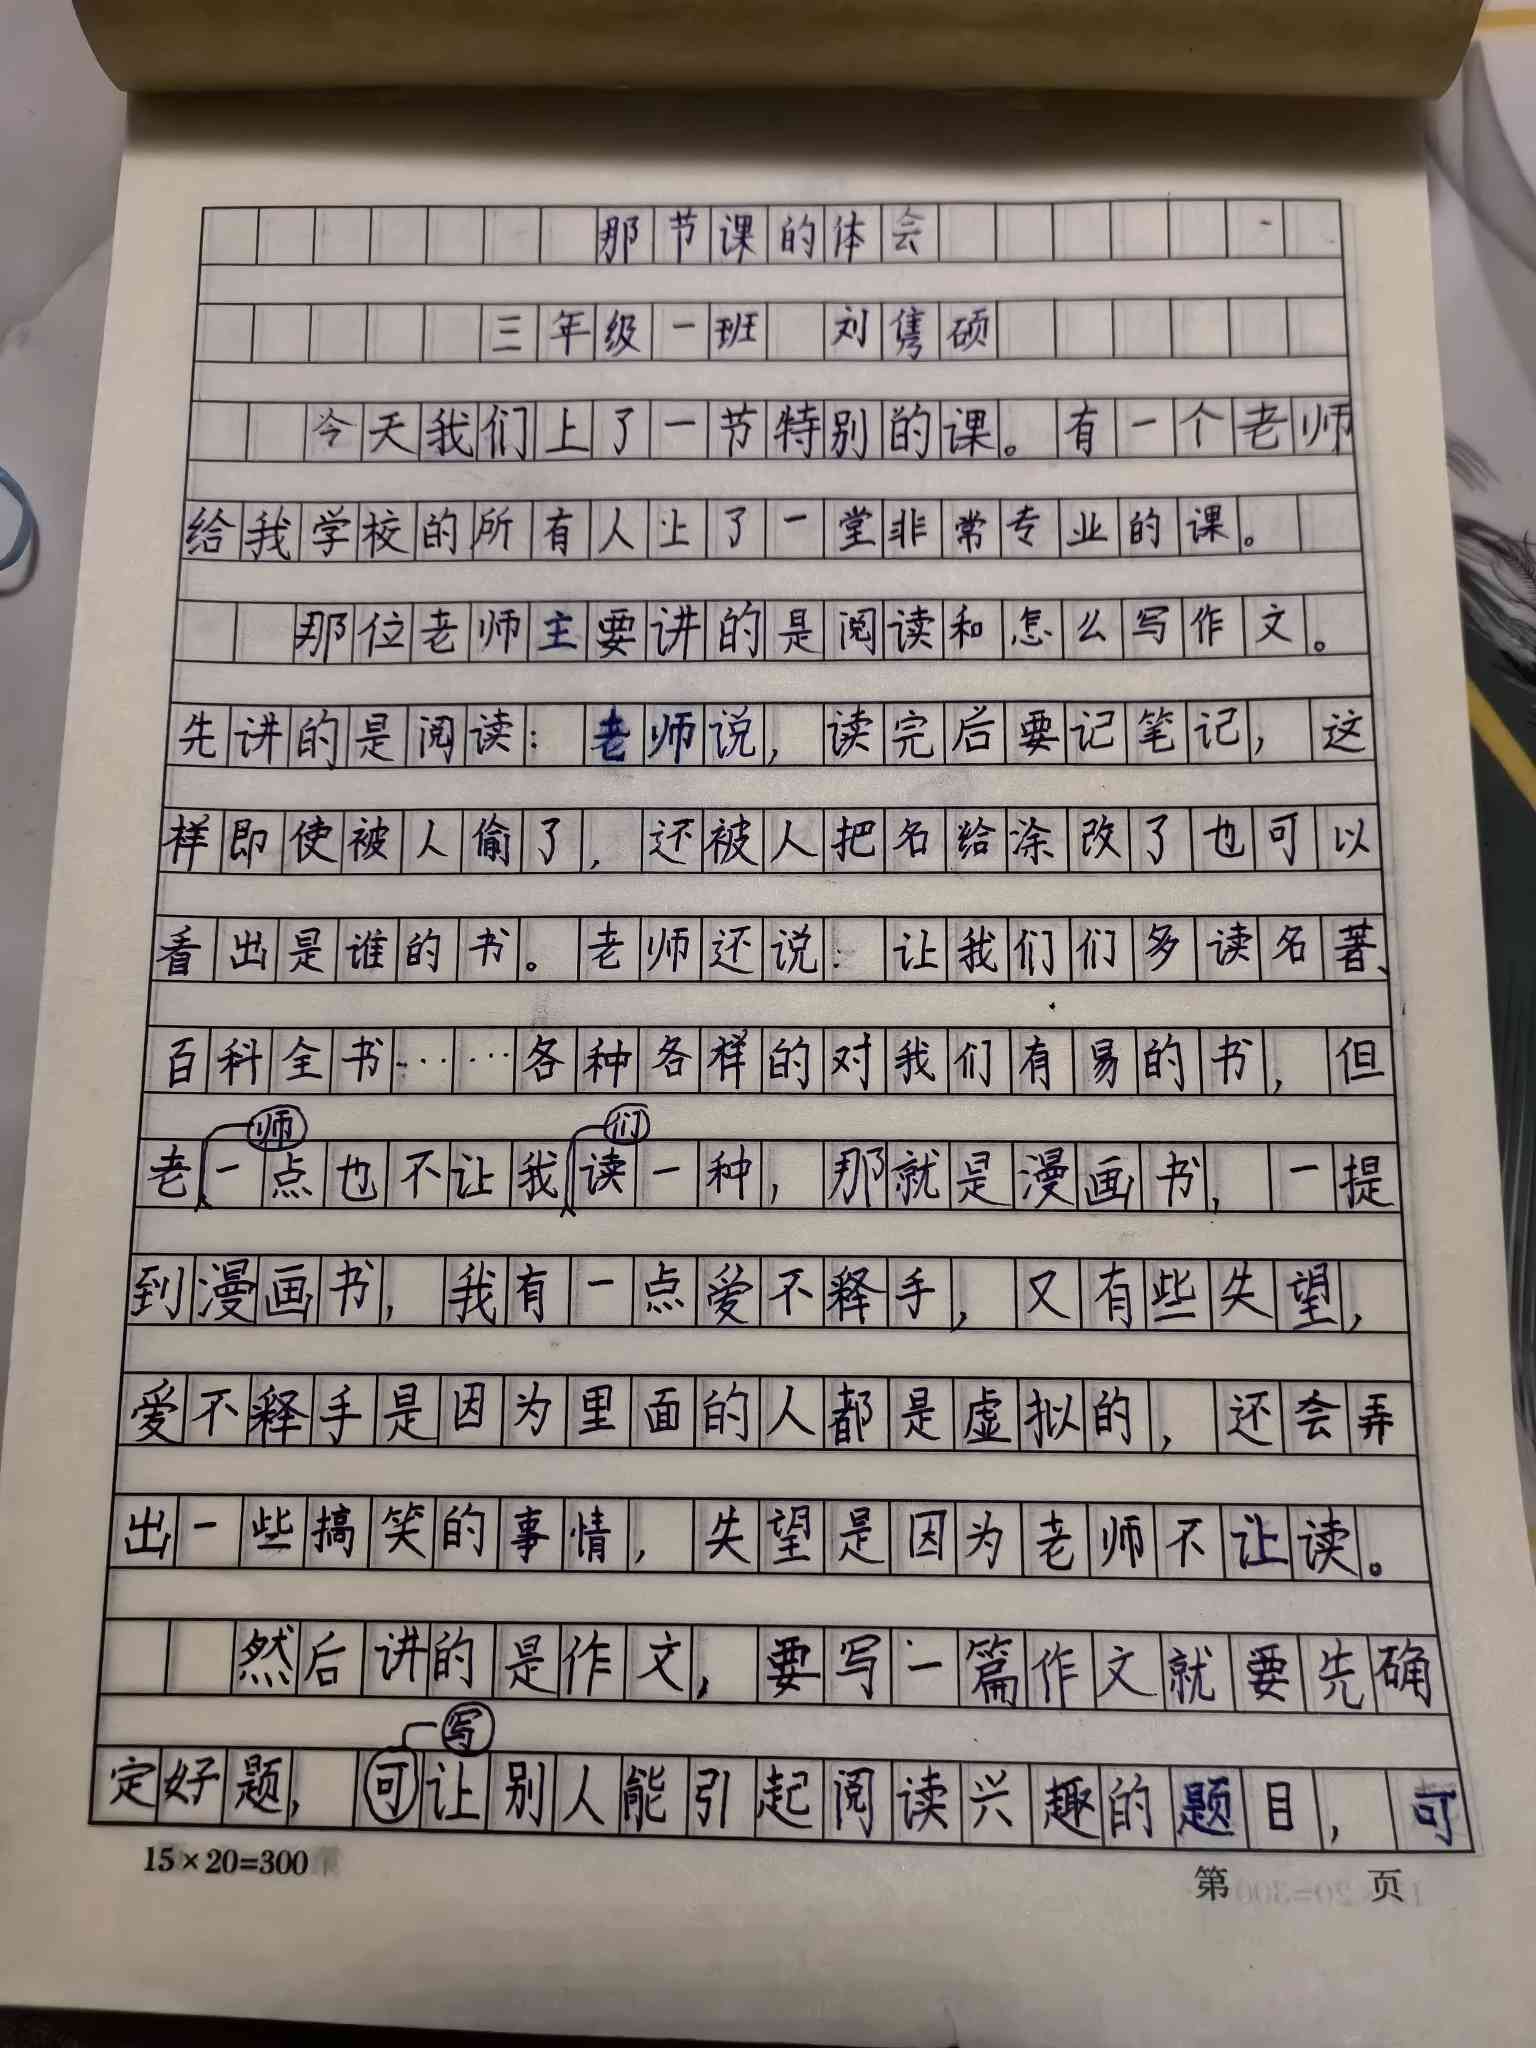 那节课的体会
三年级一班 刘隽硕
今天我们上了一节特别的课。有一个老师
给我学校的所有人上了一堂非常专业的课。
那位老师主要讲的是阅读和怎么写作文。
先讲的是阅读：老师说，读完后要记笔记，这
样即使被人偷了，还被人把名给涂改了也可以
看出是谁的书。老师还说：让我们们多读名著、
百科全书……各种各样的对我们有易的书，但
老师一点也不让我们读一种，那就是漫画书，一提
到漫画书，我有一点爱不释手，又有些失望，
爱不释手是因为里面的人都是虚拟的，还会弄
出一些搞笑的事情，失望是因为老师不让读。
然后讲的是作文，要写一篇作文就要先确
写
定好题，可让别人能引起阅读兴趣的题目，可
15×20=300
第 页